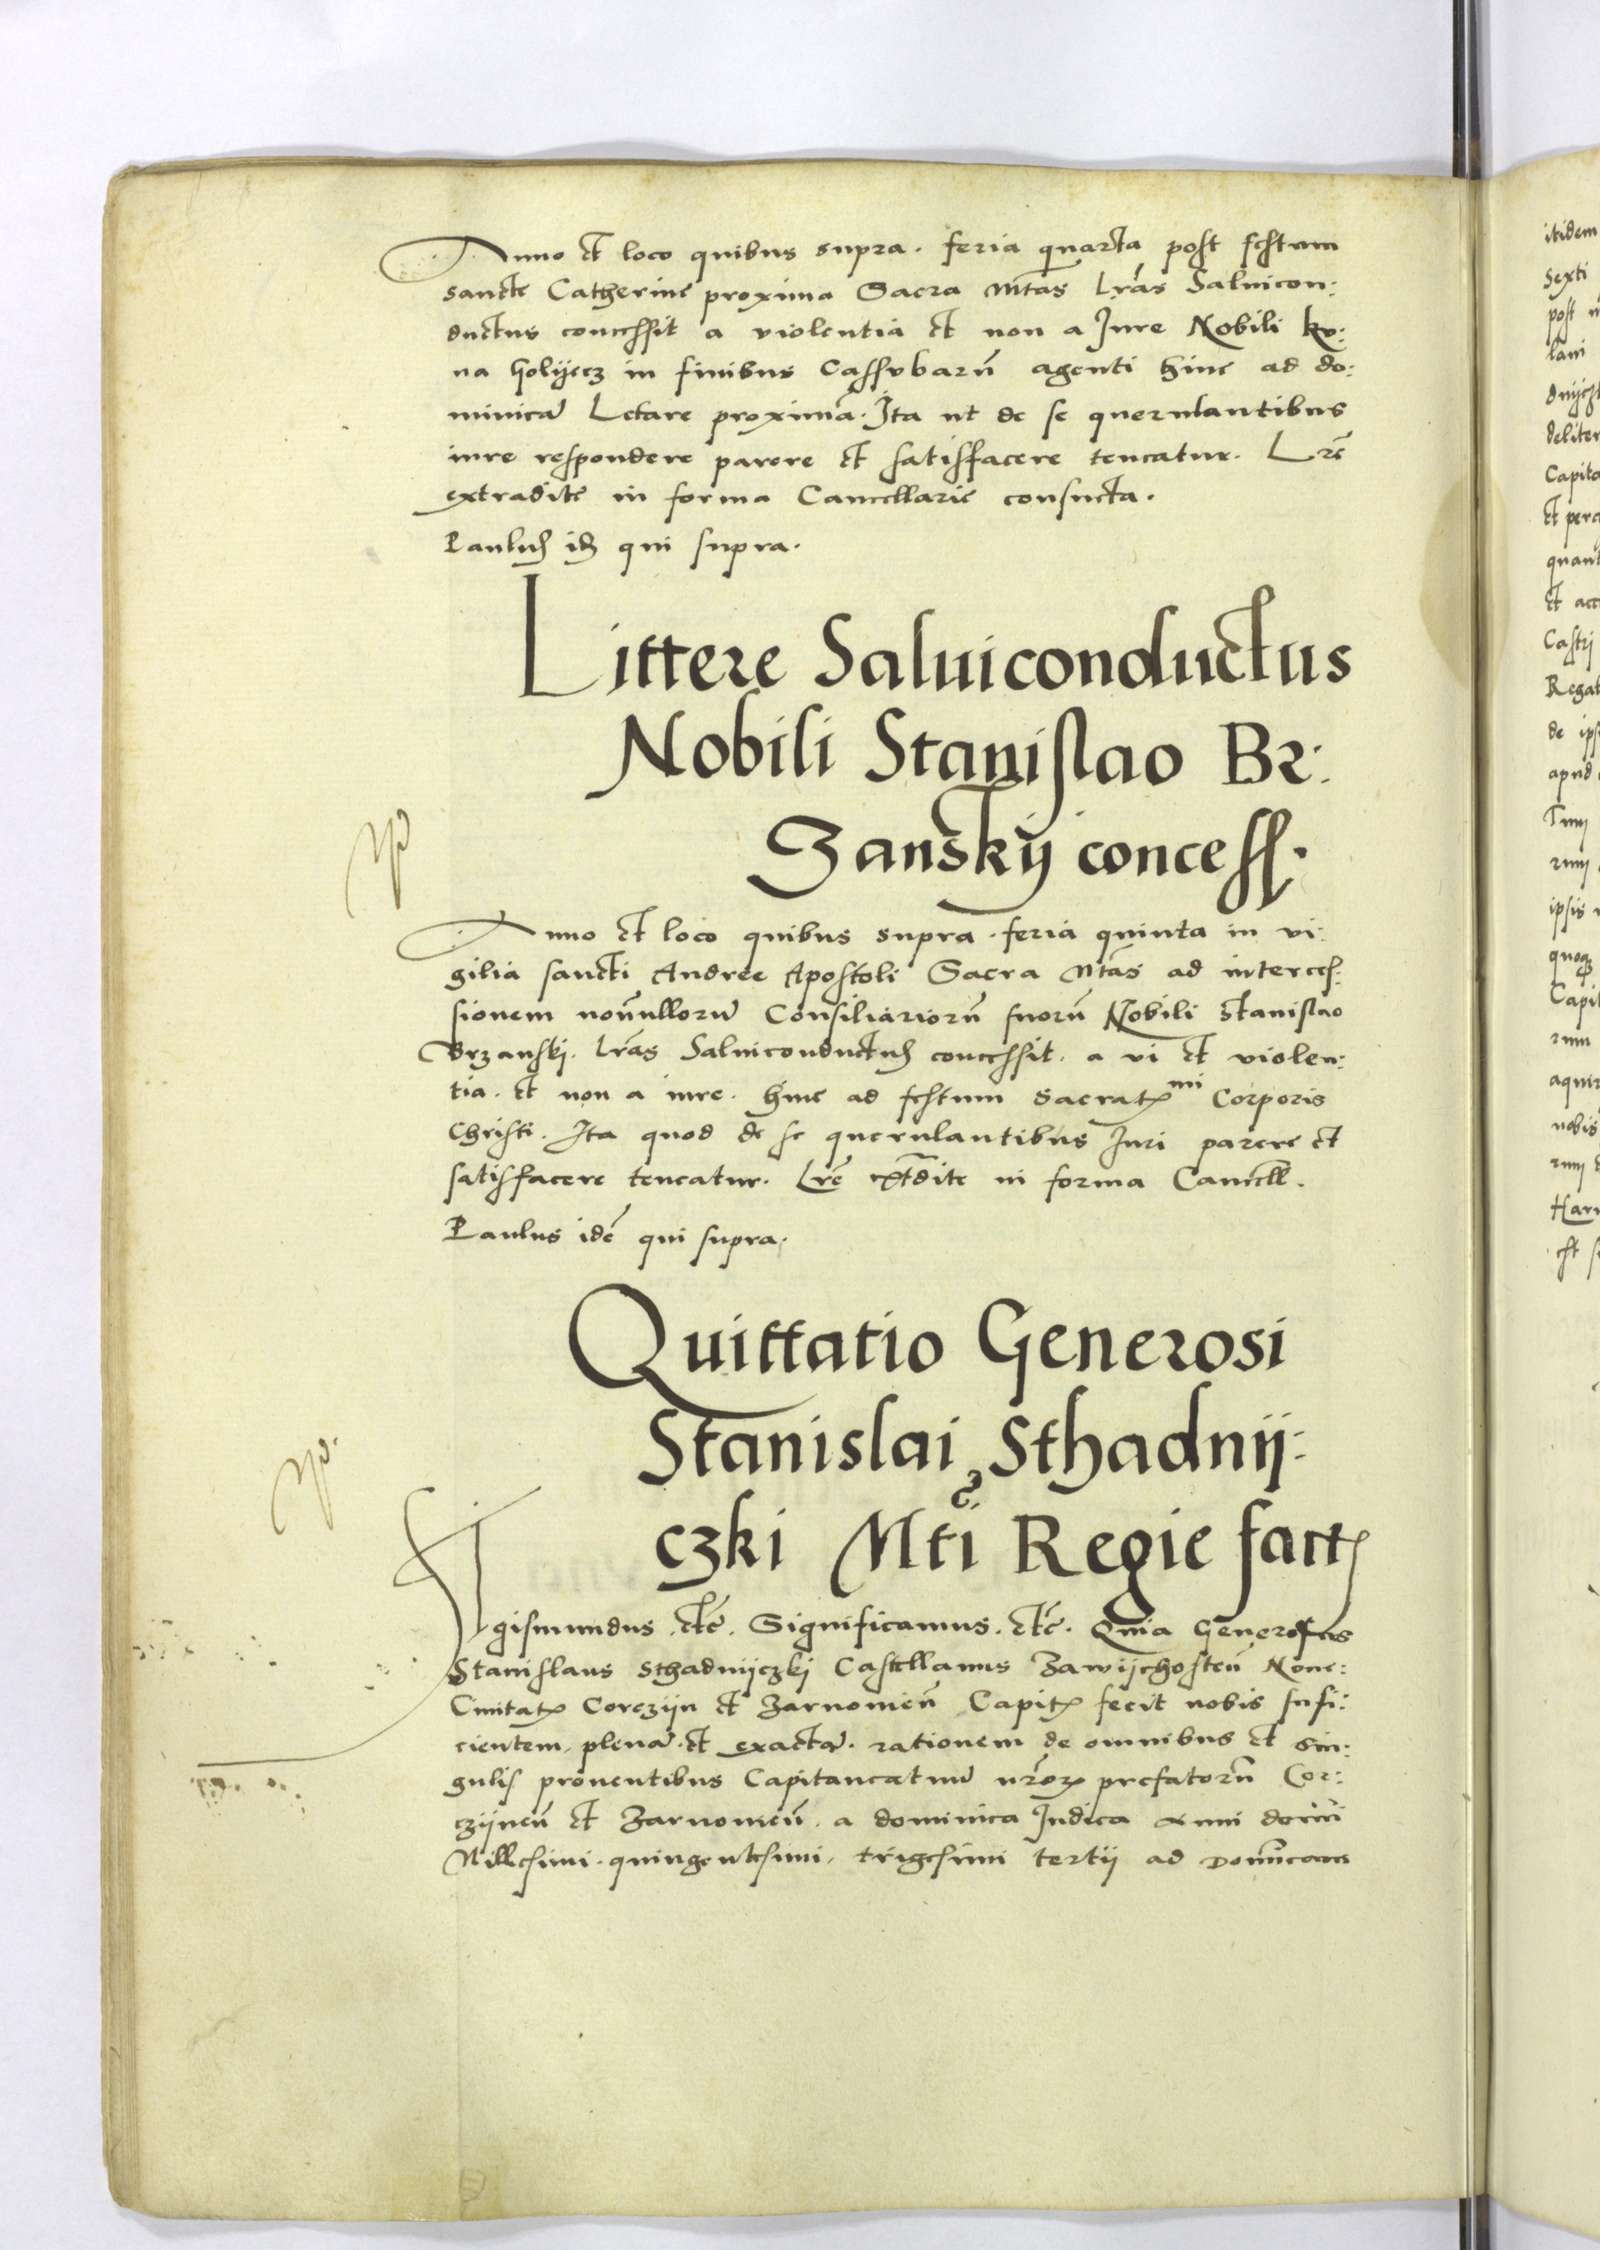 Anno et loco quibus supra. feria quarta post festum
sancte Catherine proxima Sacra Mtas Lras Saluicon:
ductus concessit a violentia et non a Jure Nobili Ku:
na Golijecz in finibus Cassubarū agenti hinc ad do:
minicā Letare proximā. Ita ut de se querulantibus
iure respondere parere et satisfacere teneatur. Lre
extradite in forma Cancellarie consueta.
Paulus idē qui supra.
Littere Saluiconductus
Nobili Stanislao Br:
Zanskij concess.
Anno et loco quibus supra. feria quinta in vi:
gilia sancti Andree Apostoli Sacra Mtas ad interces:
sionem nonnullorū Consiliariorū suorū Nobili Stanislao
Brzanskj. Lras Saluiconductus concessit. a vi et violen:
tia. et non a iure. hinc ad festum Sacratmi Corporis
Christi. Ita quod de se querulantibus Juri parere et
satisfacere teneatur. Lre extdite in forma Cancell.
Paulus idē qui supra.
Quittatio Generosi
Stanislai Sthadnij:
czki Mti Regie fact
Sigismundus etc. Significamus. etc. Quia Generosus
Stanislaus Sthadnijczkj Castellanus Zawijchosteñ None:
Ciuitat Corczijn et Zarnowieñ Capit fecit nobis sufi:
cientem. plenā. et exactā. rationem de omnibus et sin:
gulis prouentibus Capitaneatuū nrōr prefatorū Cor:
czijneñ et Zarnowieñ. a dominica Judica Anni domi
Millesimi. quingentesimi. trigesimi tertij ad Domicam